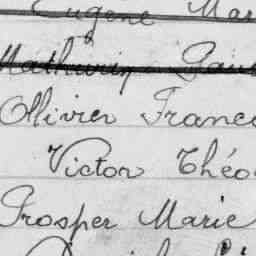 Eugène Mar
Mathurin Gau
Ollivier Franc
Victor Théo
Prosper Marie